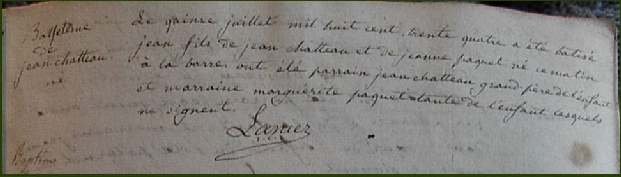 Baptême
de
jean chatteau
né
Le quinze juillet mil huit cent trente quatre a été batisé
jean fils de jean chatteau et de jeanne paquel né ce matin
à la barre. ont été parrain jean chatteau grand père de l'enfant
et marraine marguerite paquet tante de l'enfant lesquels
ne signent.
Lanier
Baptême